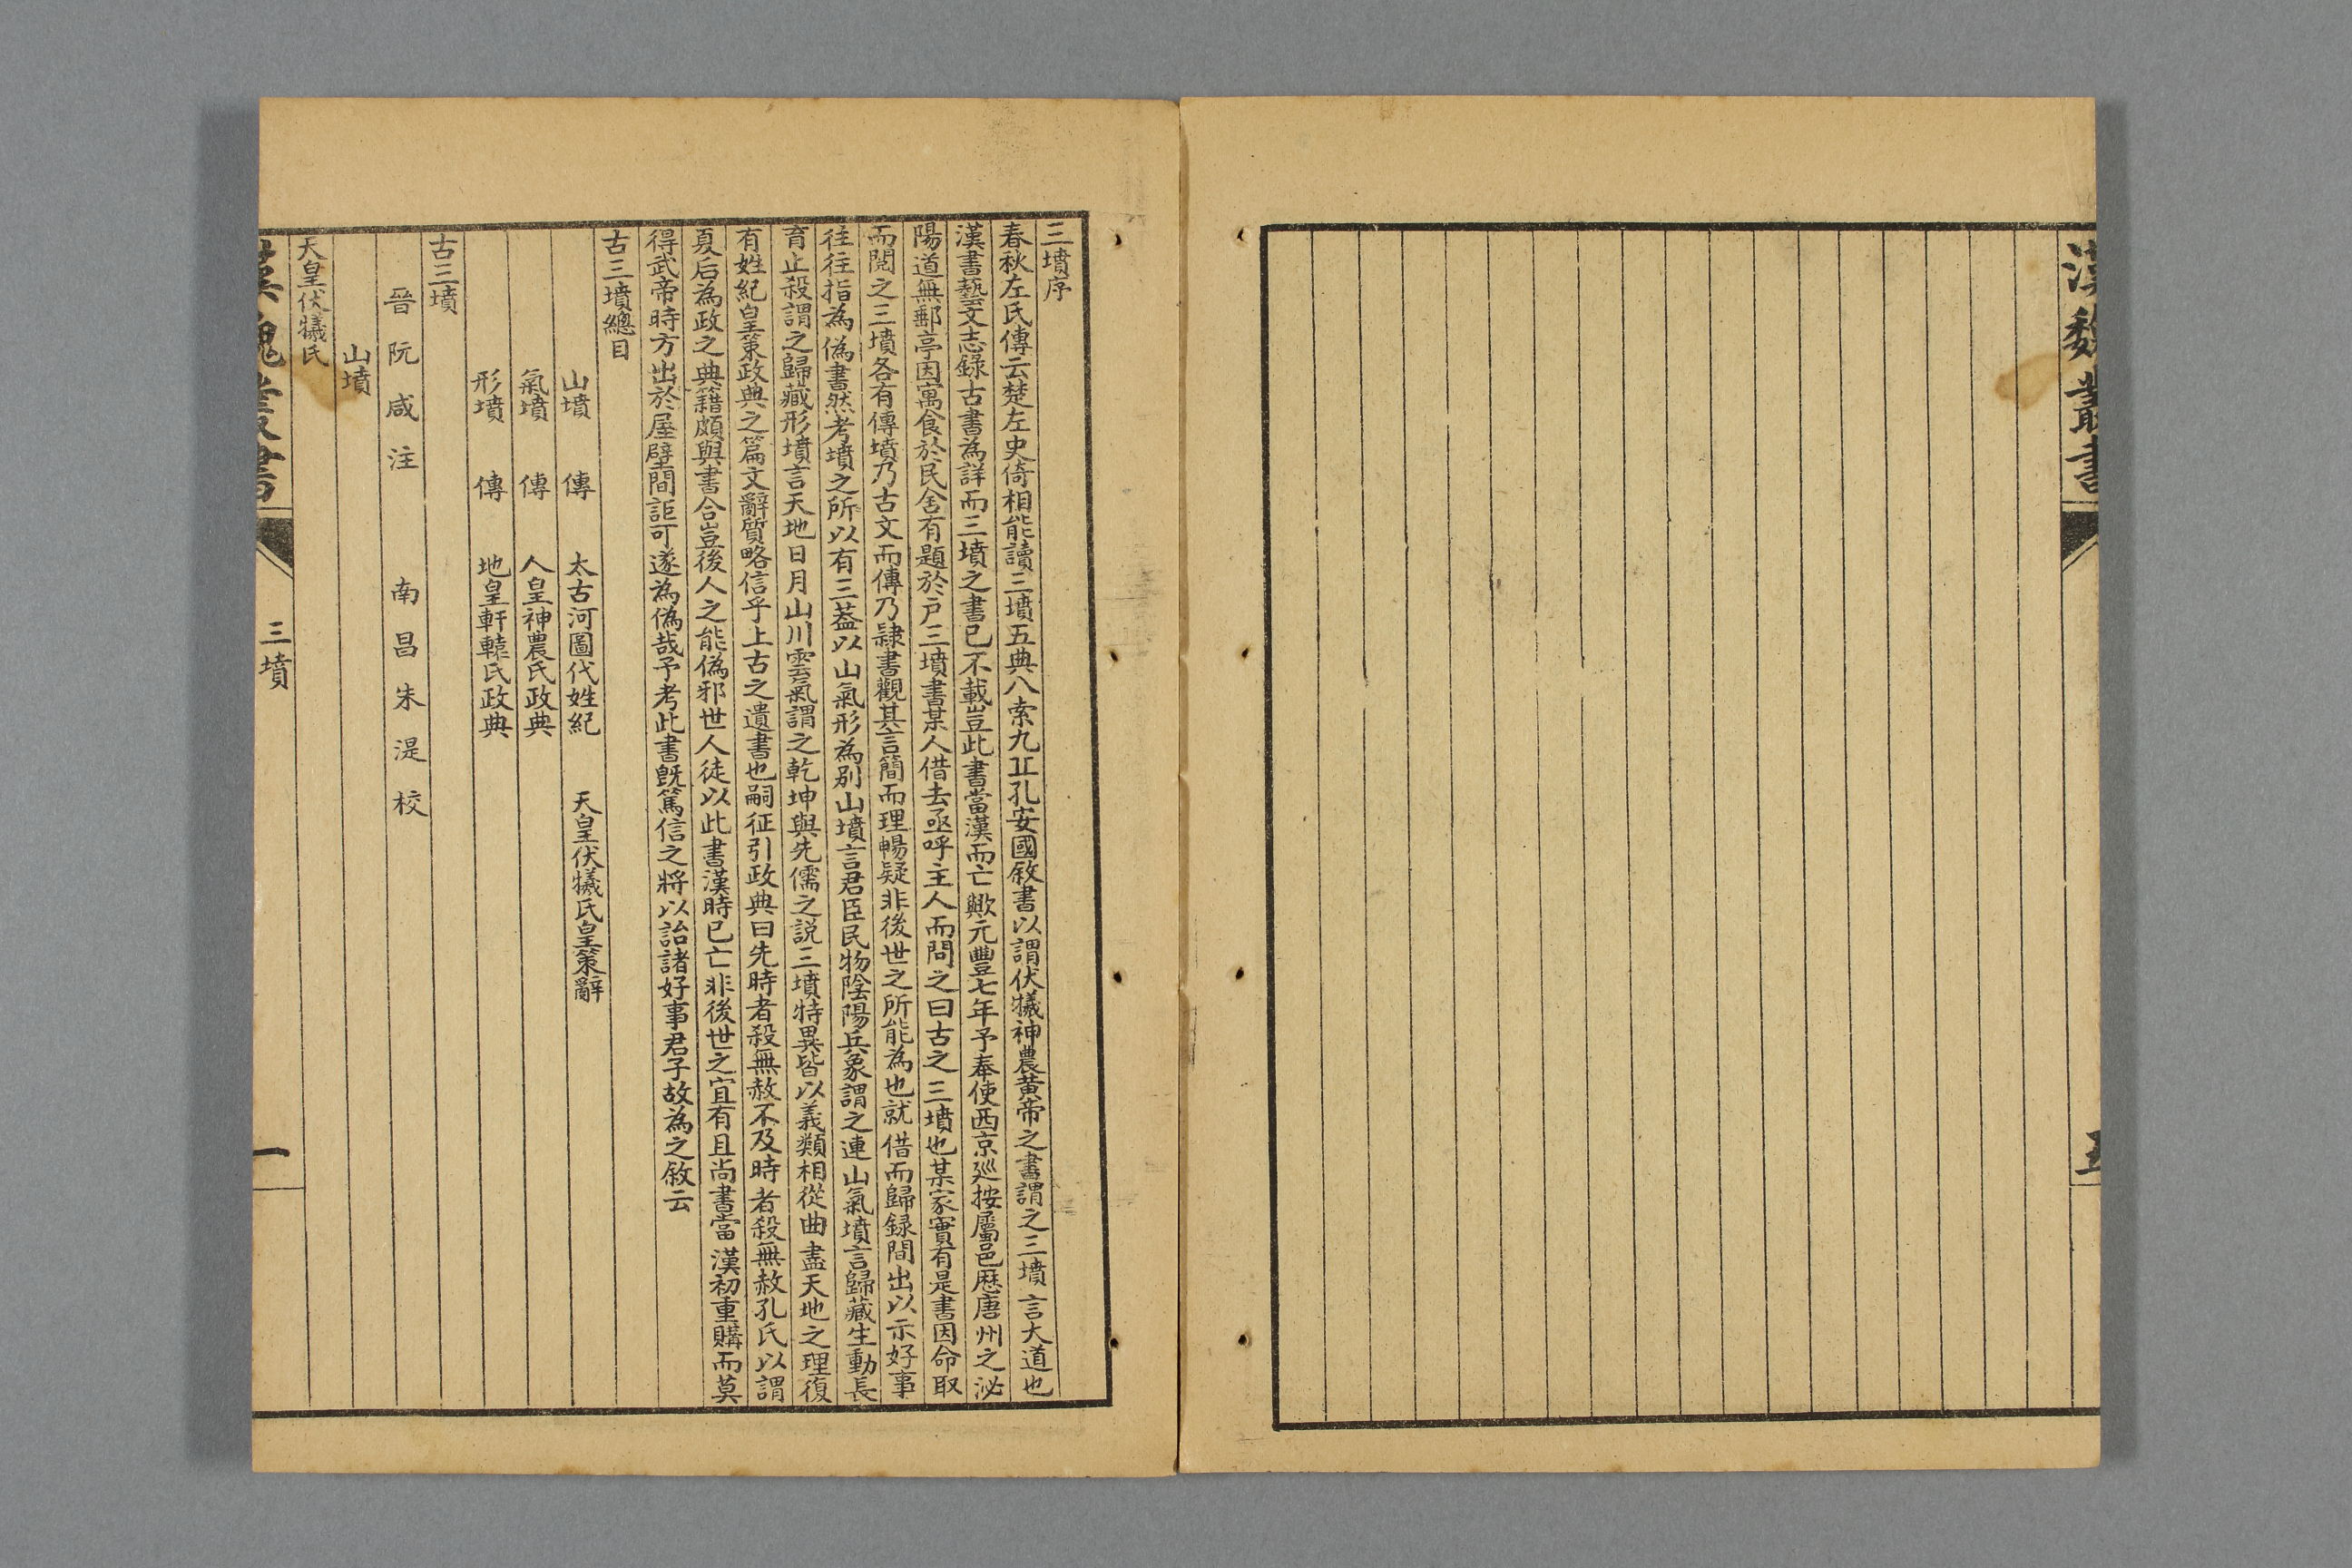 漢魏叢書
三墳序
春秋左氏傳云楚左史倚相能讀三墳五典八索九丠孔安國敘書以謂伏犧神農黃帝之書謂之三墳言大道也
漢書藝文志錄古書為詳而三墳之書已不載豈此書當漢而亡歟元豐七年予奉使西京廵按屬邑歷唐州之泌
陽道無郵亭因寓食於民舍有題於户三墳書某人借去亟呼主人而問之曰古之三墳也某家實有是書因命取
而閱之三墳各有傳墳乃古文而傳乃隷書觀其言簡而理暢疑非後世之所能為也就借而歸録間出以示好事
往往指為偽書然考墳之所以有三葢以山氣形為别山墳言君臣民物陰陽兵象謂之連山氣墳言歸藏生動長
育止殺謂之歸藏形墳言天地日月山川雲氣謂之乾坤與先儒之説三墳特異皆以義類相從曲盡天地之理復
有姓紀皇策政典之篇文辭質略信乎上古之遺書也嗣征引政典曰先時者殺無赦不及時者殺無赦孔氏以謂
夏后為政之典籍頗與書合豈後人之能偽邪世人徒以此書漢時已亡非後世之宜有且尚書當漢初重購而莫
得武帝時方出於屋壁間詎可遂為偽哉予考此書既篤信之將以詒諸好事君子故為之敘云
古三墳總目
山墳 傳 太古河圖代姓紀 天皇伏犧氏皇策辭
氣墳 傳 人皇神農氏政典
形墳 傳 地皇軒轅氏政典
古三墳
晉阮咸注 南昌朱湜校
山墳
天皇伏犧氏
漢魏叢書 三墳 一